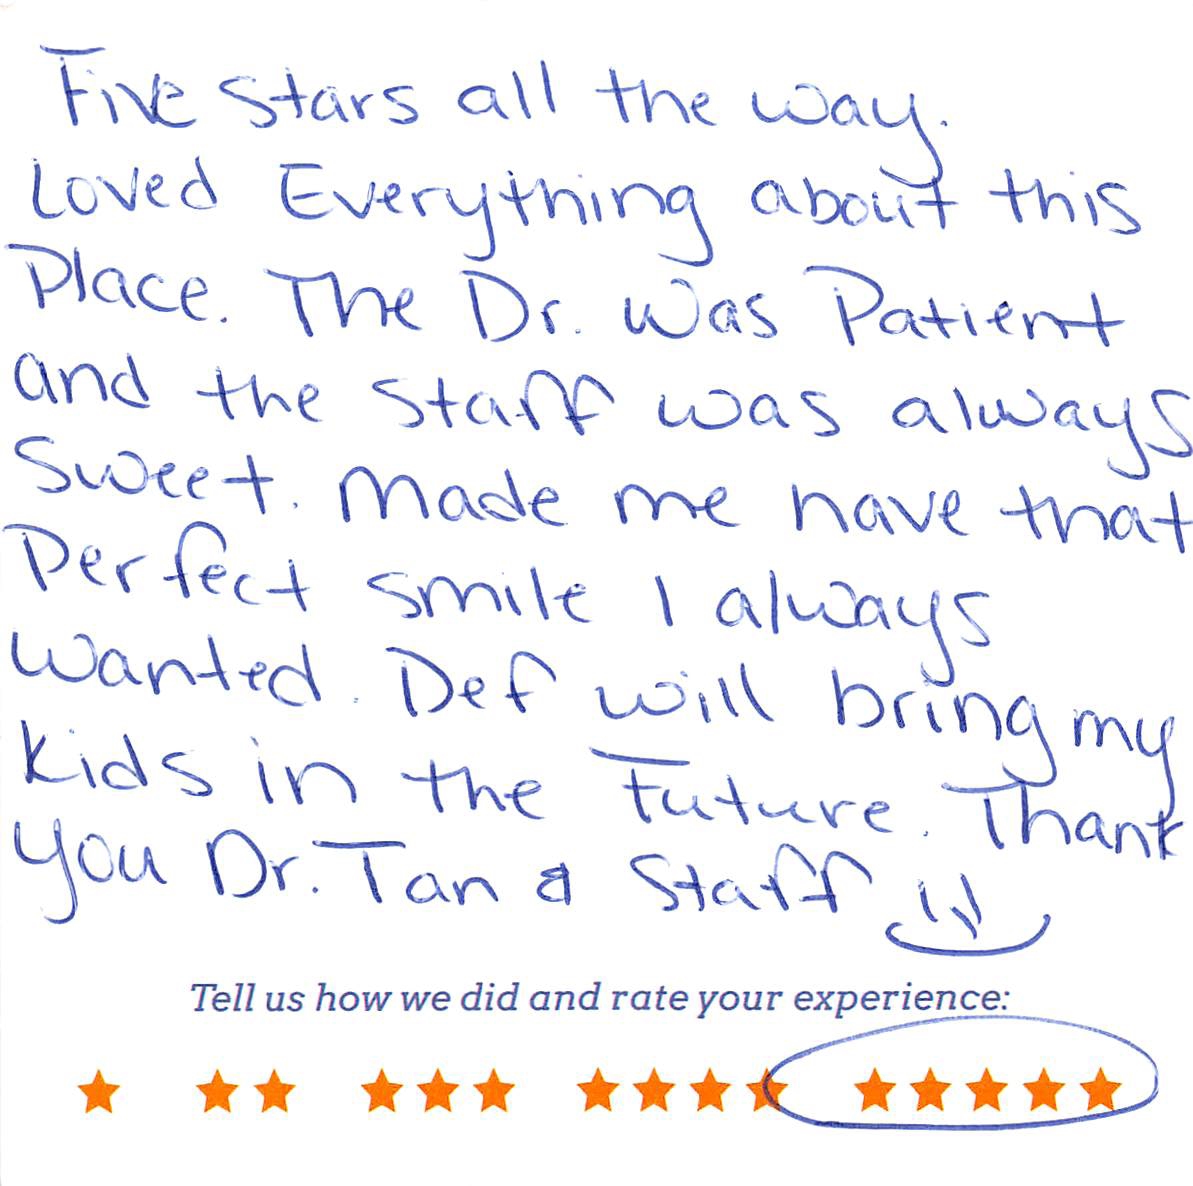 Five stars all the way.
Loved Everything about this
Place. The Dr. was Patient
and the staff was always
Sweet. Made me have that
Perfect smile I always
wanted. Def will bring my
kids in the Future. Thank
you Dr. Tan & Staff
Tell us how we did and rate your experience: